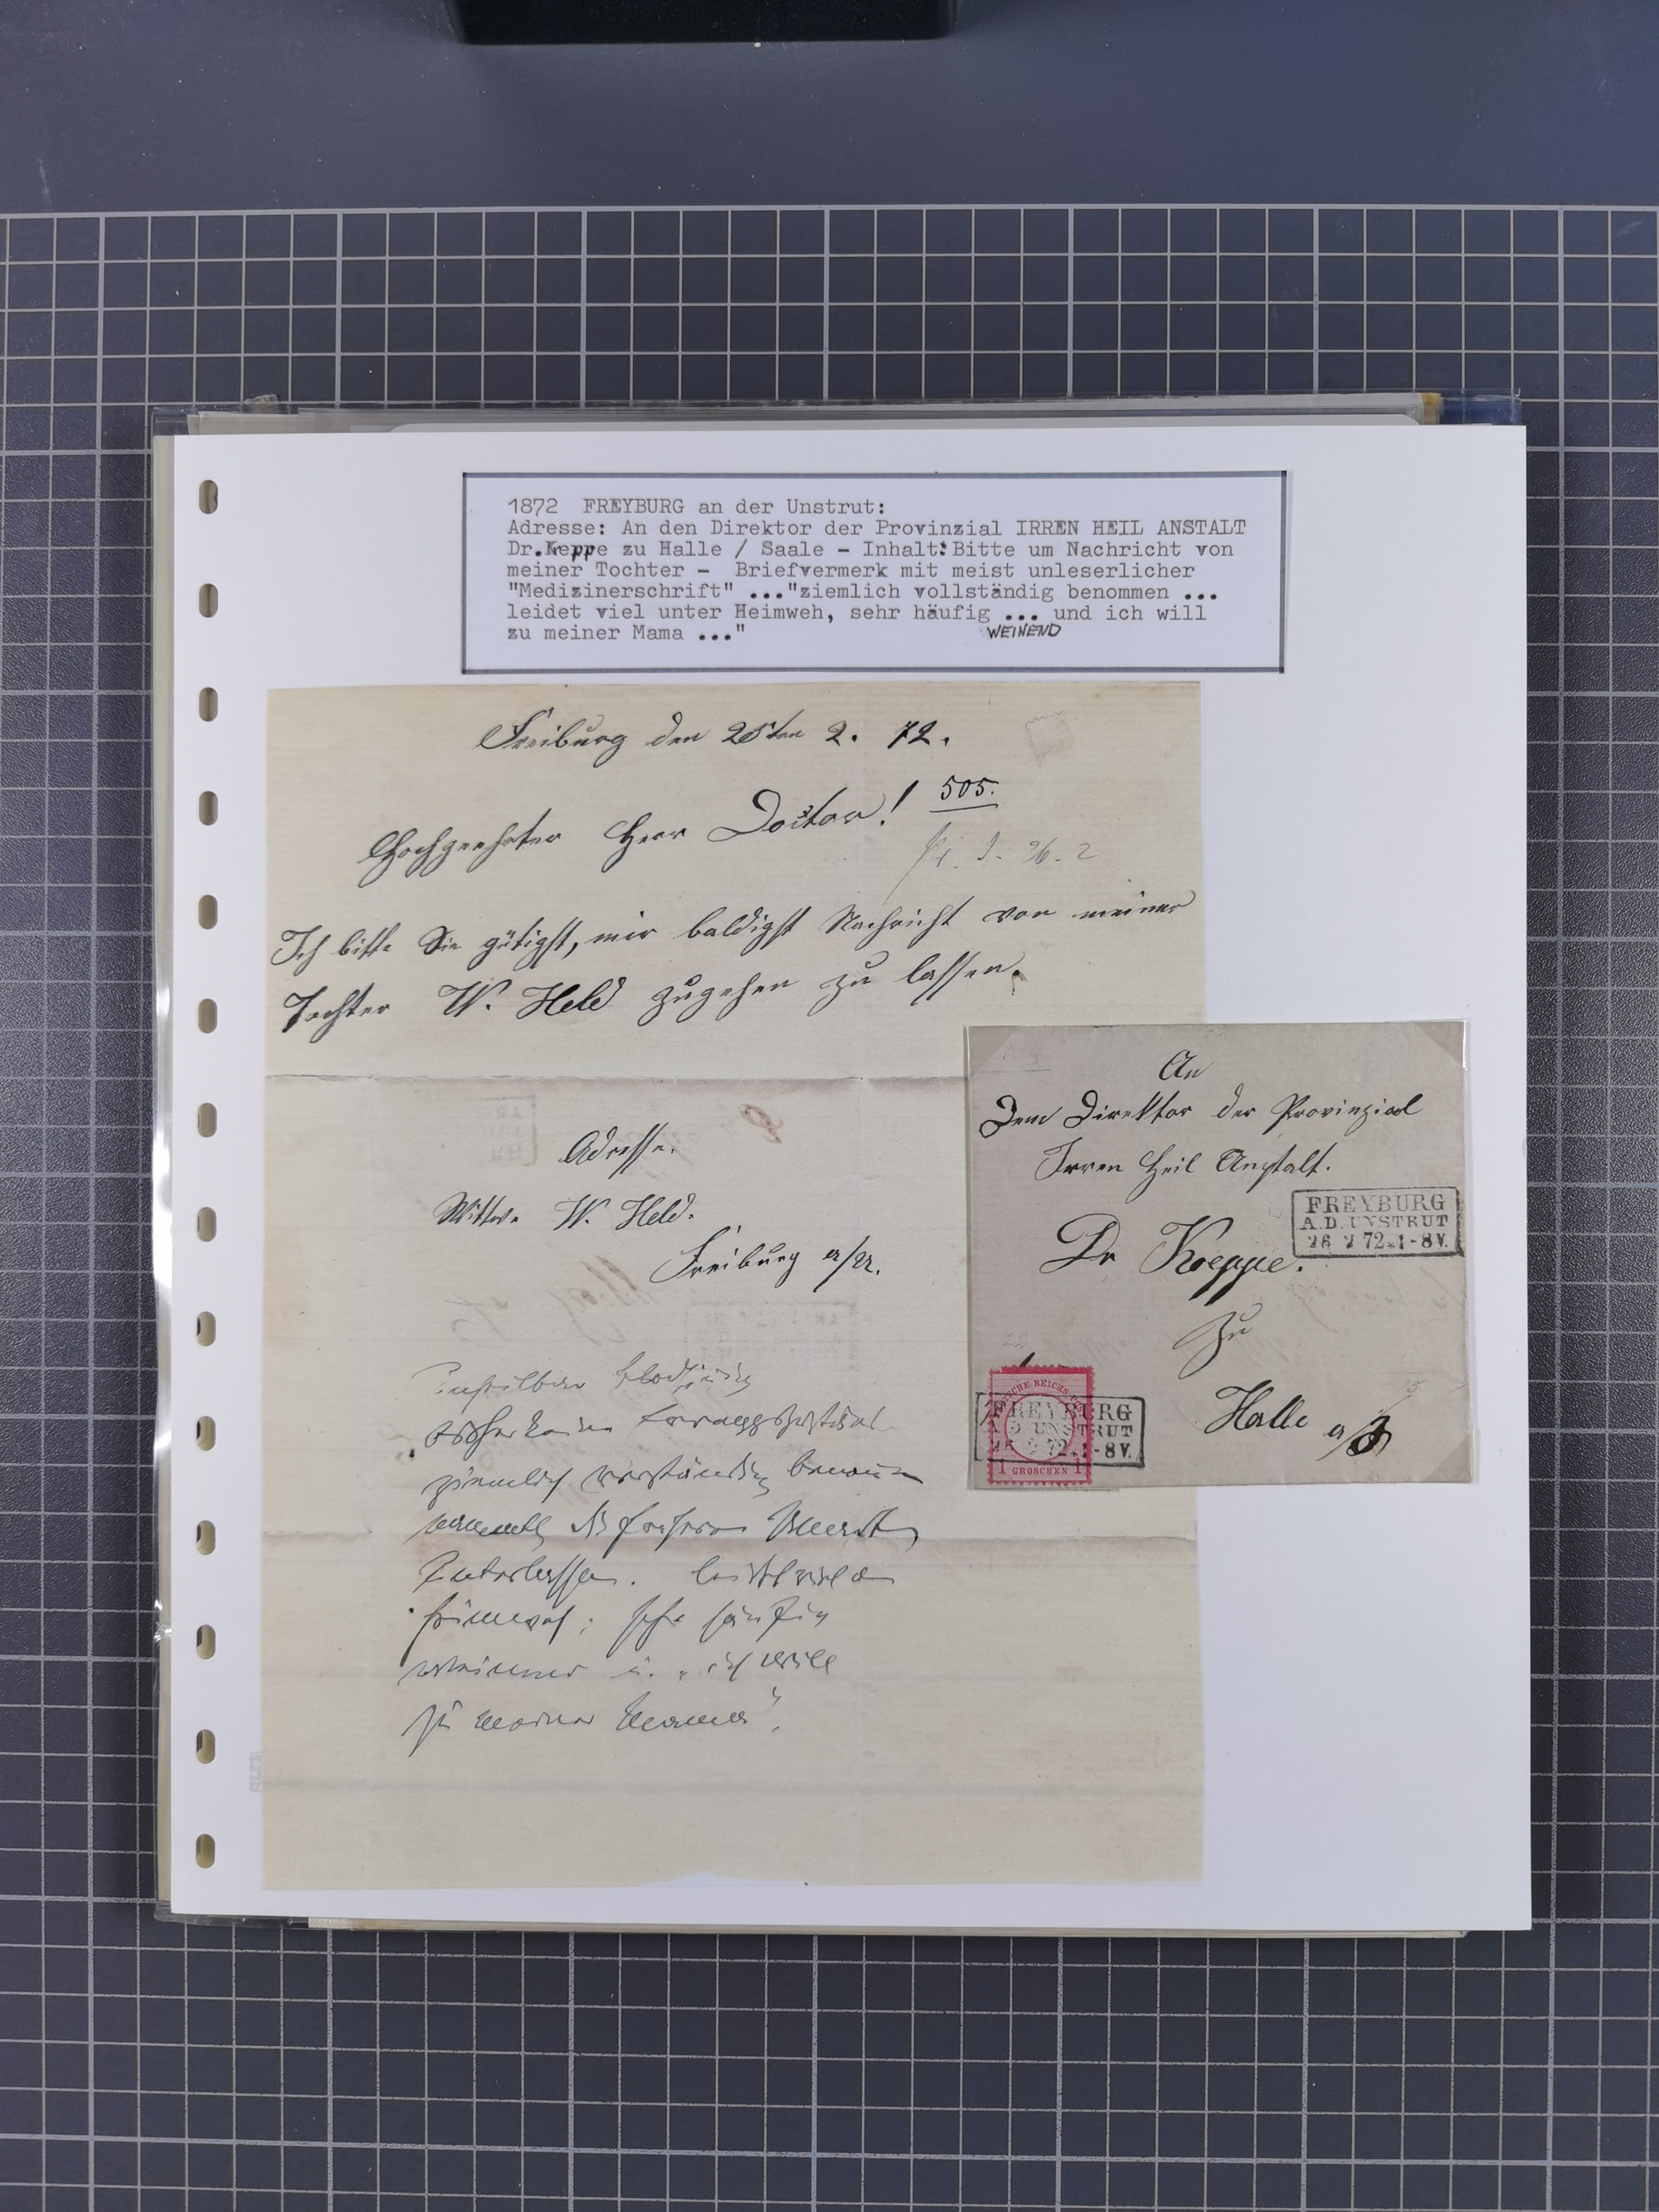 1872 FREYBURG an der Unstrut:
Adresse: An den Direktor der Provinzial IRREN HEIL ANSTALT
Dr. Keppe zu Halle / Saale - Inhalt: Bitte um Nachricht von
meiner Tochter - Briefvermerk mit meist unleserlicher
"Medizinerschrift" ..."ziemlich vollständig benommen ...
leidet viel unter Heimweh, sehr häufig ... und ich will
WEINEND
zu meiner Mama ..."
Freiburg den 25ten 2. 72.
Hochgeehrter Herr Doctor!
505.
26. 2
Ich bitte Sie gütigst, mir baldigst Nachricht von meiner
Tochter W. Held zugehen zu lassen.
Adresse.
Wittwe W. Held.
Freiburg a/U.
ziemlich verständig
Unterlassen.
Heimweh; sehr häufig
u. "ich will
zu meiner Mama".
An
Dem Direktor der Provinzial
Irren Heil Anstalt.
Dr Koeppe.
zu
Halle a/S
FREYBURG
A.D. UNSTRUT
26 2 72 \*1-8 V.
FREYBURG
A.D. UNSTRUT
26 2 72 \*1-8 V.
1 GROSCHEN 1